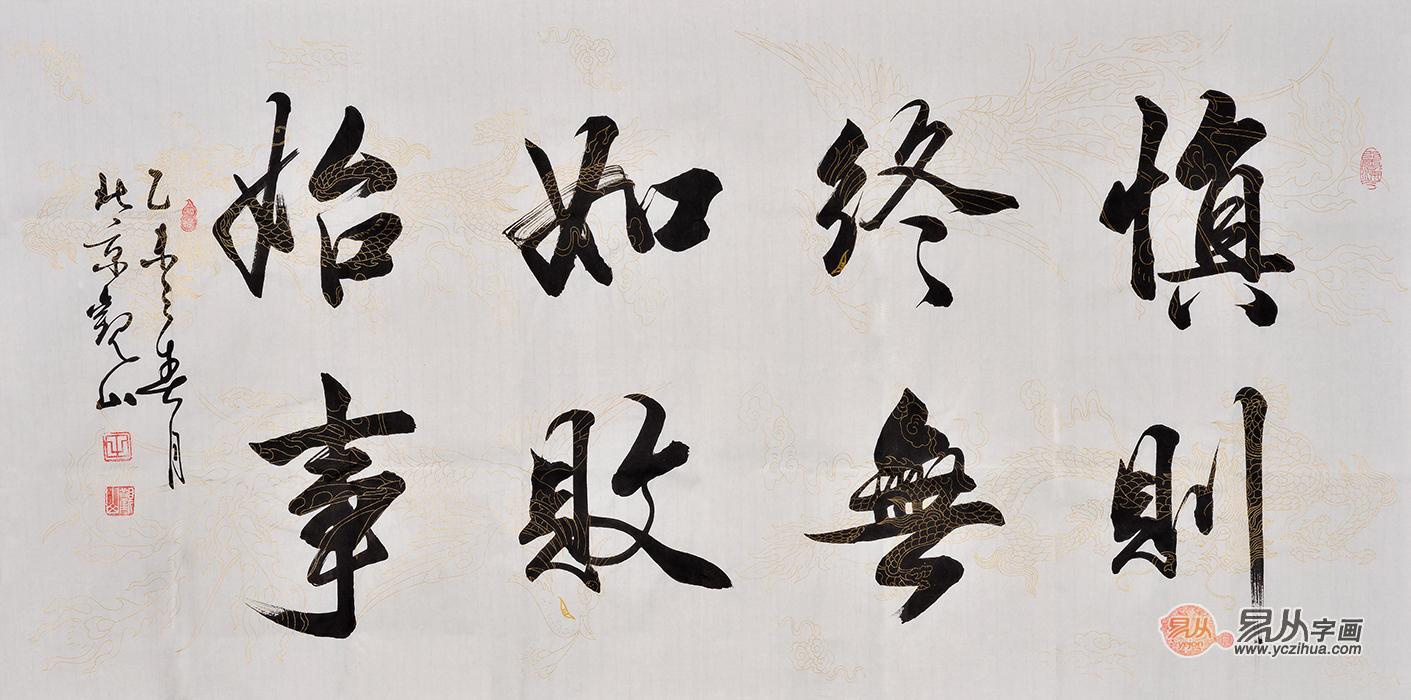 慎終如始
則無敗事
乙未春月
北京觀山
易从
易从字画
www.yczihua.com